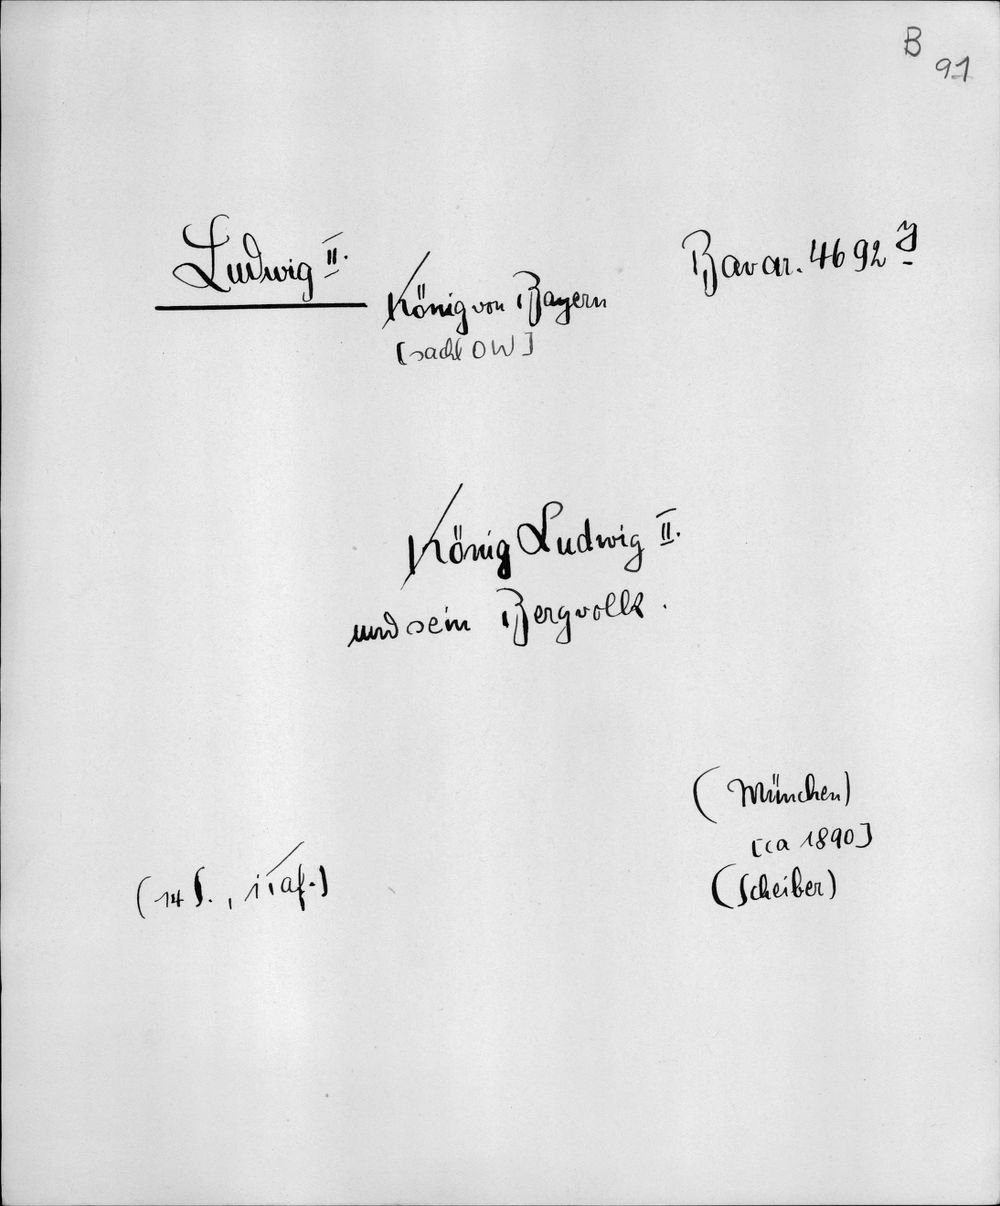 B
91
Ludwig II.
Bavar. 4692 y
König von Bayern
[sachl OW]
König Ludwig II.
und sein Bergvolk.
(München)
[ca 1890]
(Scheiber)
(14 S., 1 Taf.)